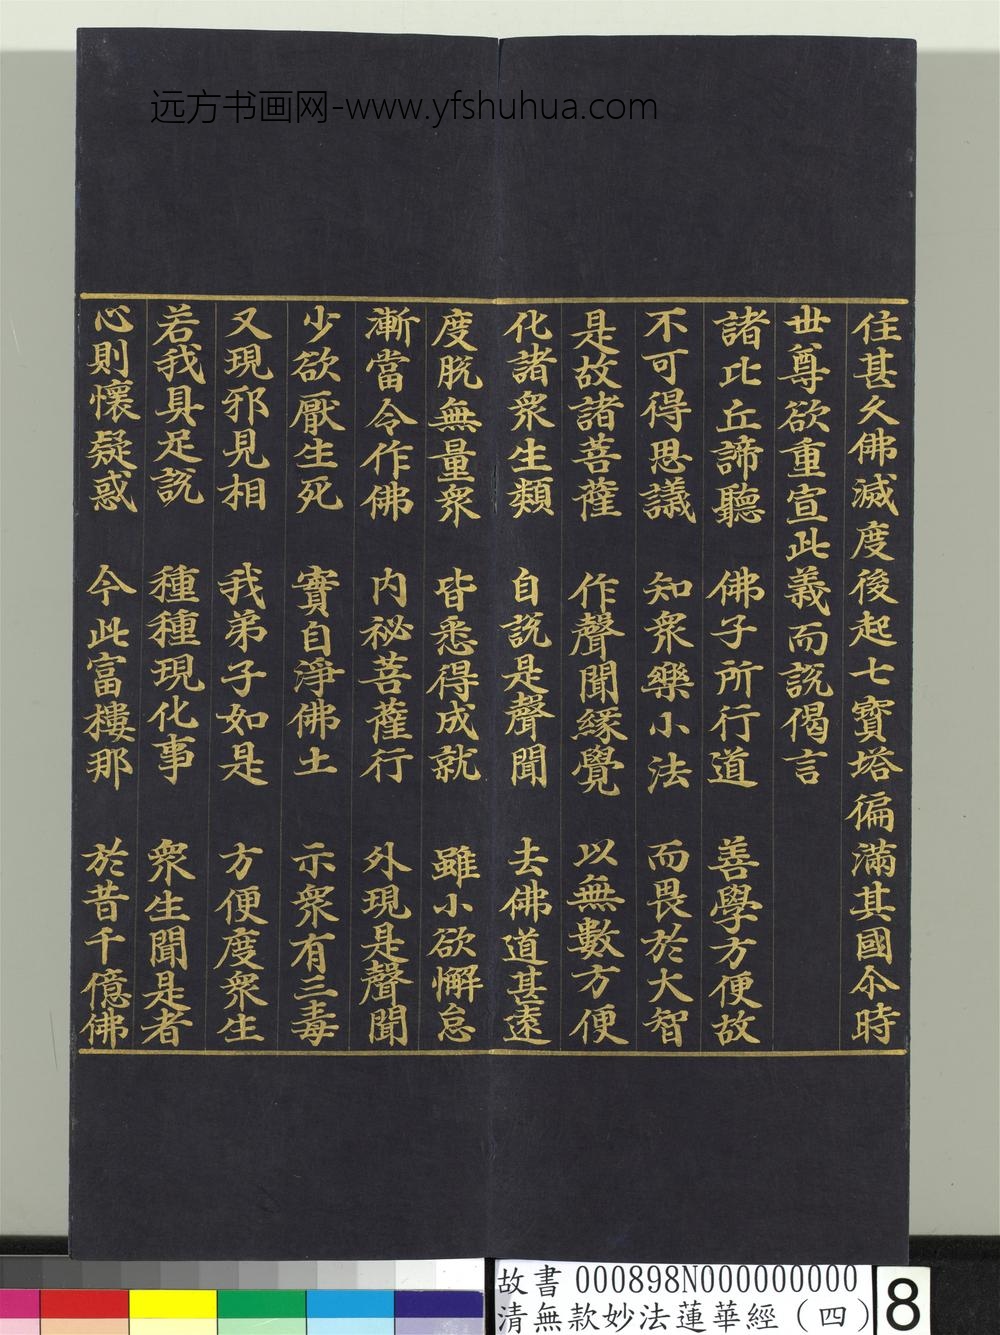 远方书画网-www.yfshuhua.com
住甚久佛滅度後起七寶塔徧滿其國尒時
世尊欲重宣此義而說偈言
諸比丘諦聽 佛子所行道 善學方便故
不可得思議 知衆樂小法 而畏於大智
是故諸菩薩 作聲聞緣覺 以無數方便
化諸衆生類 自說是聲聞 去佛道甚遠
度脫無量衆 皆悉得成就 雖小欲懈怠
漸當令作佛 內祕菩薩行 外現是聲聞
少欲厭生死 實自淨佛土 示衆有三毒
又現邪見相 我弟子如是 方便度衆生
若我具足說 種種現化事 衆生聞是者
心則懷疑惑 今此富樓那 於昔千億佛
故書 000898N000000000
清無款妙法蓮華經（四）
8